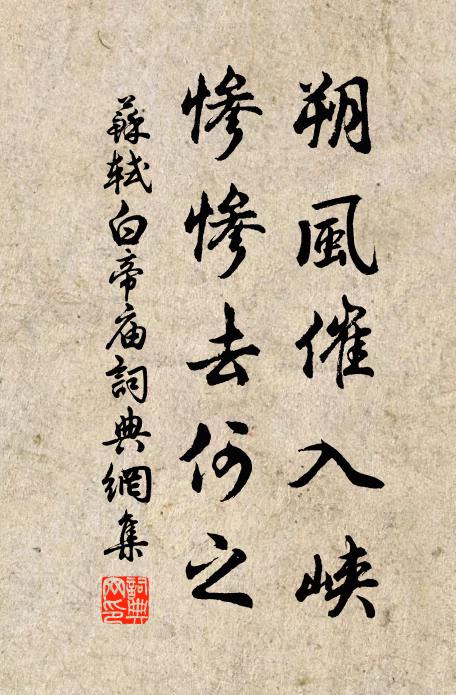 朔風催入峽
慘慘去何之
蘇軾白帝庙詞典網集
詞典網印